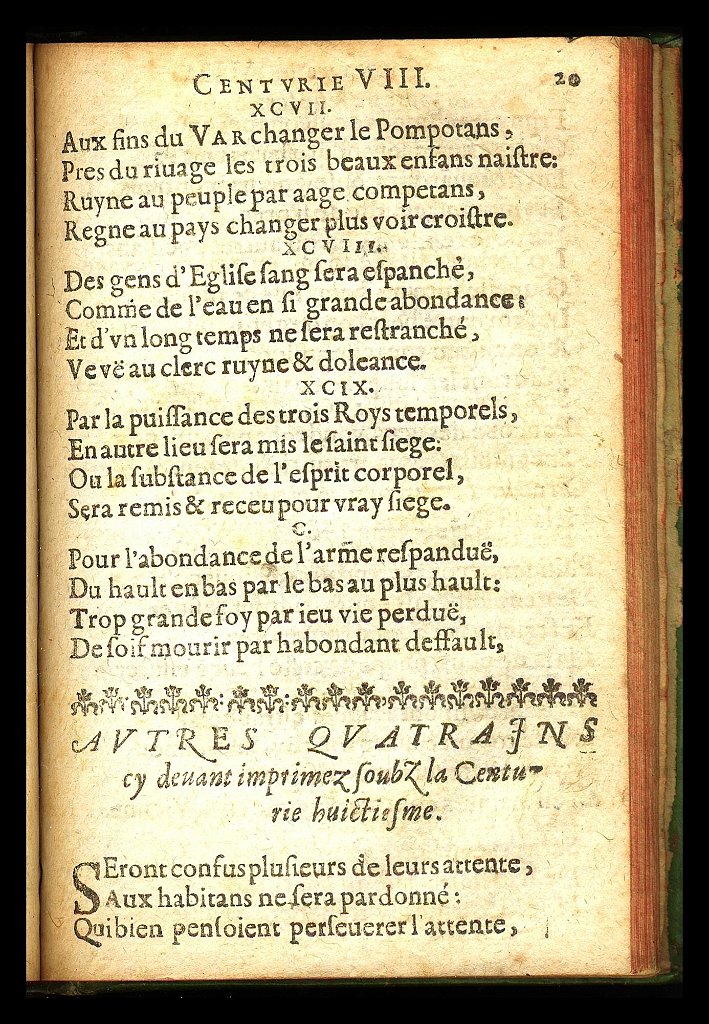 CENTVRIE VIII. 20
XCVII.
Aux fins du VAR changer le Pompotans,
Pres du riuage les trois beaux enfans naiſtre:
Ruyne au peuple par aage competans,
Regne au pays changer plus voir croiſtre.
XCVIII.
Des gens d'Egliſe ſang ſera eſpanché,
Comme de l'eau en ſi grande abondance:
Et d'vn long temps ne ſera reſtranché,
Ve vë au clerc ruyne & doleance.
XCIX.
Par la puiſſance des trois Roys temporels,
En autre lieu ſera mis le ſaint ſiege:
Ou la ſubſtance de l'eſprit corporel,
Sera remis & receu pour vray ſiege.
C.
Pour l'abondance de l'arme reſpanduë,
Du hault en bas par le bas au plus hault:
Trop grande foy par ieu vie perduë,
De ſoif mourir par habondant deffault,
AVTRES QVATRAINS
cy deuant imprimez ſoubz la Centu-
rie huictieſme.
SEront confus pluſieurs de leurs attente,
Aux habitans ne ſera pardonné:
Qui bien penſoient perſeuerer l'attente,